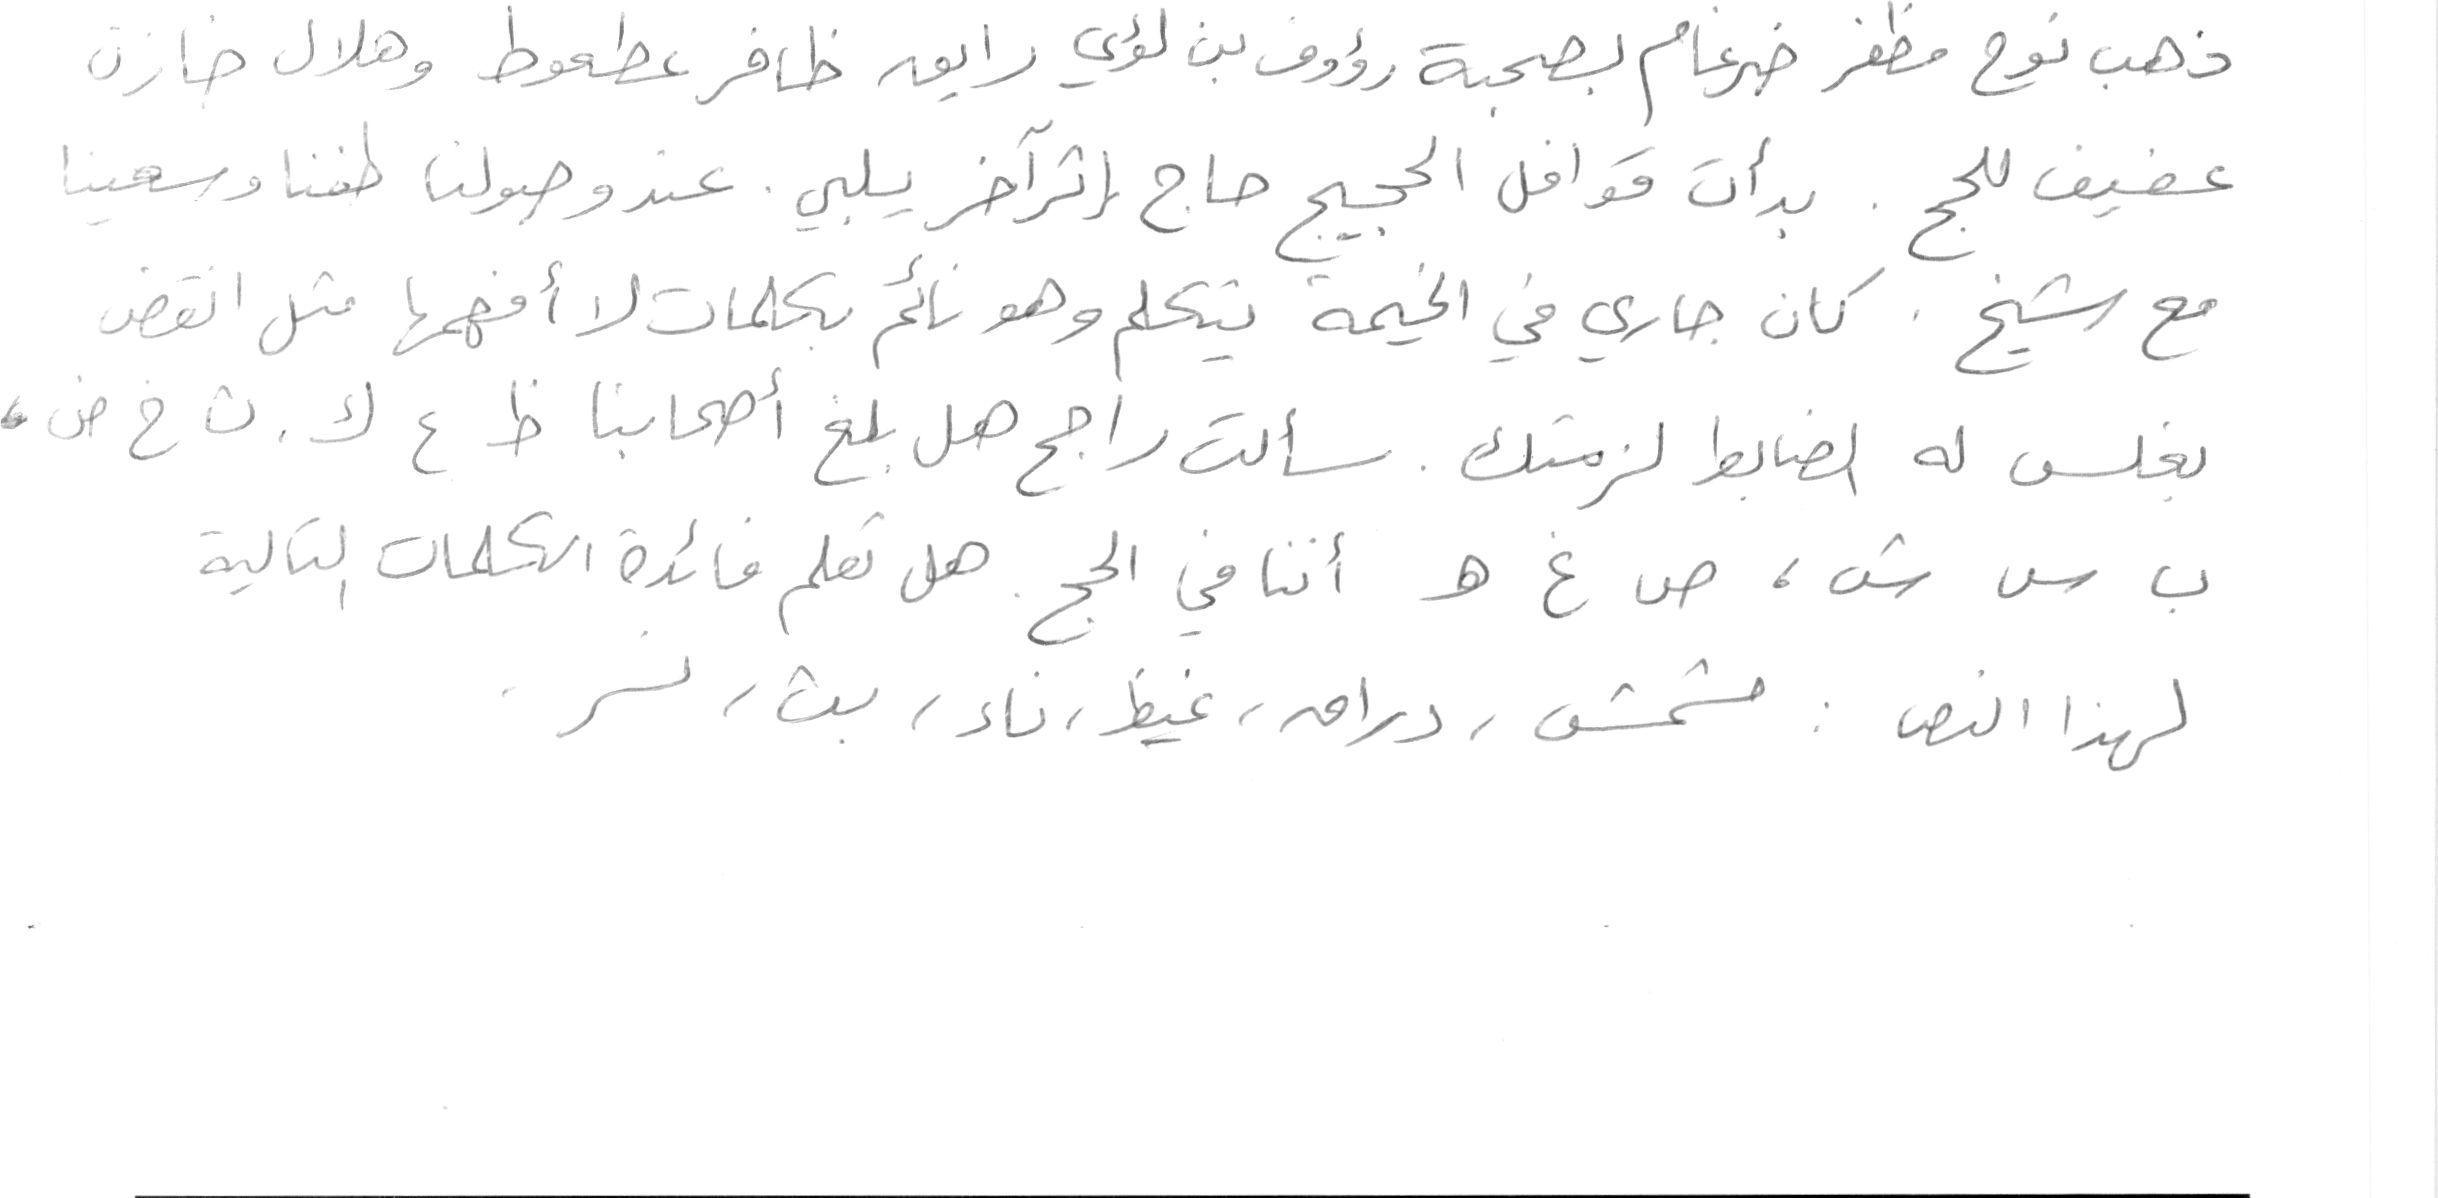 ذهب نوح مظفر ضرغام بصحبة رؤوف بن لؤي رايق ظافر عطعوط وهلال خازن
عفيف للحج . بدأت قوافل الحجيج حاج إثر آخر يلبي . عند وصولنا طفنا وسعينا
مع شيخ . كان جاري في الخيمة يتكلم وهو نائم بكلمات لا أفهمها مثل انقض
بغلس له الضابط لزمتك . سألت راجح هل بلغ أصحابنا ظ ع ك . ث خ ض ،
ب س ش ، ص غ ه أننا في الحج . هل تعلم فائدة الكلمات التالية
لهذا النص : مشمش ، دراق ، غيظ ، ناء ، بث ، نسر .